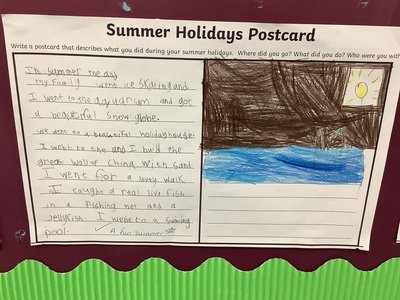 Summer Holidays Postcard
Write a postcard that describes what you did during your summer holidays. Where did you go? What did you do? Who were you wit
In summer me and
my family went ice skating and
I went to the aquarium and got
a beautiful snow globe.
we went to a beautiful holiday house.
I went to the and I build the
great wall of china with sand
I went for a lovely walk
I caught a real live fish
in a fiching net and a
Jellyfish. I went to a suming
pool.
A fun summer